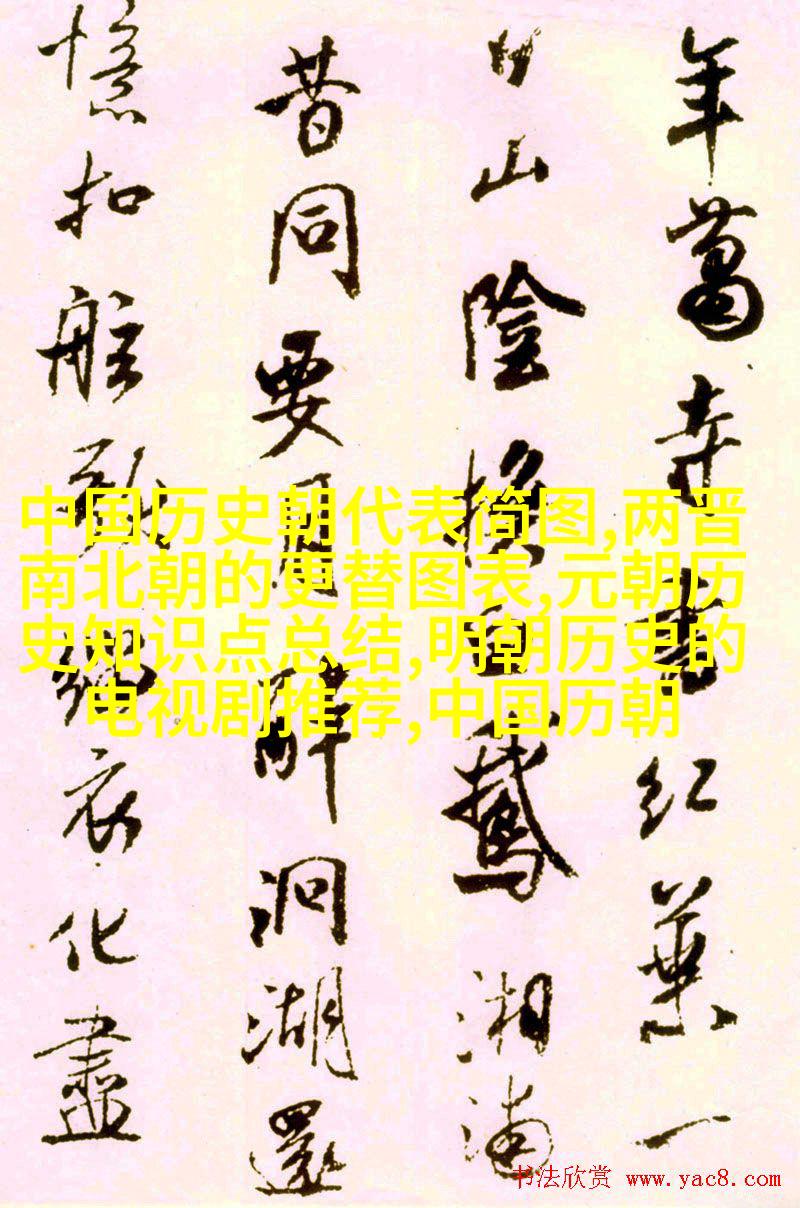 年蕭寺書紅葉一
日山陰換白鵝湘浦
昔同要月醉洞湖還
憶扣舷歌緇衣化盡
中国历史朝代表简图,两晋
南北朝的更替图表,元朝历
史知识点总结,明朝历史的
电视剧推荐,中国历朝
书法欣赏 www.yac8.com